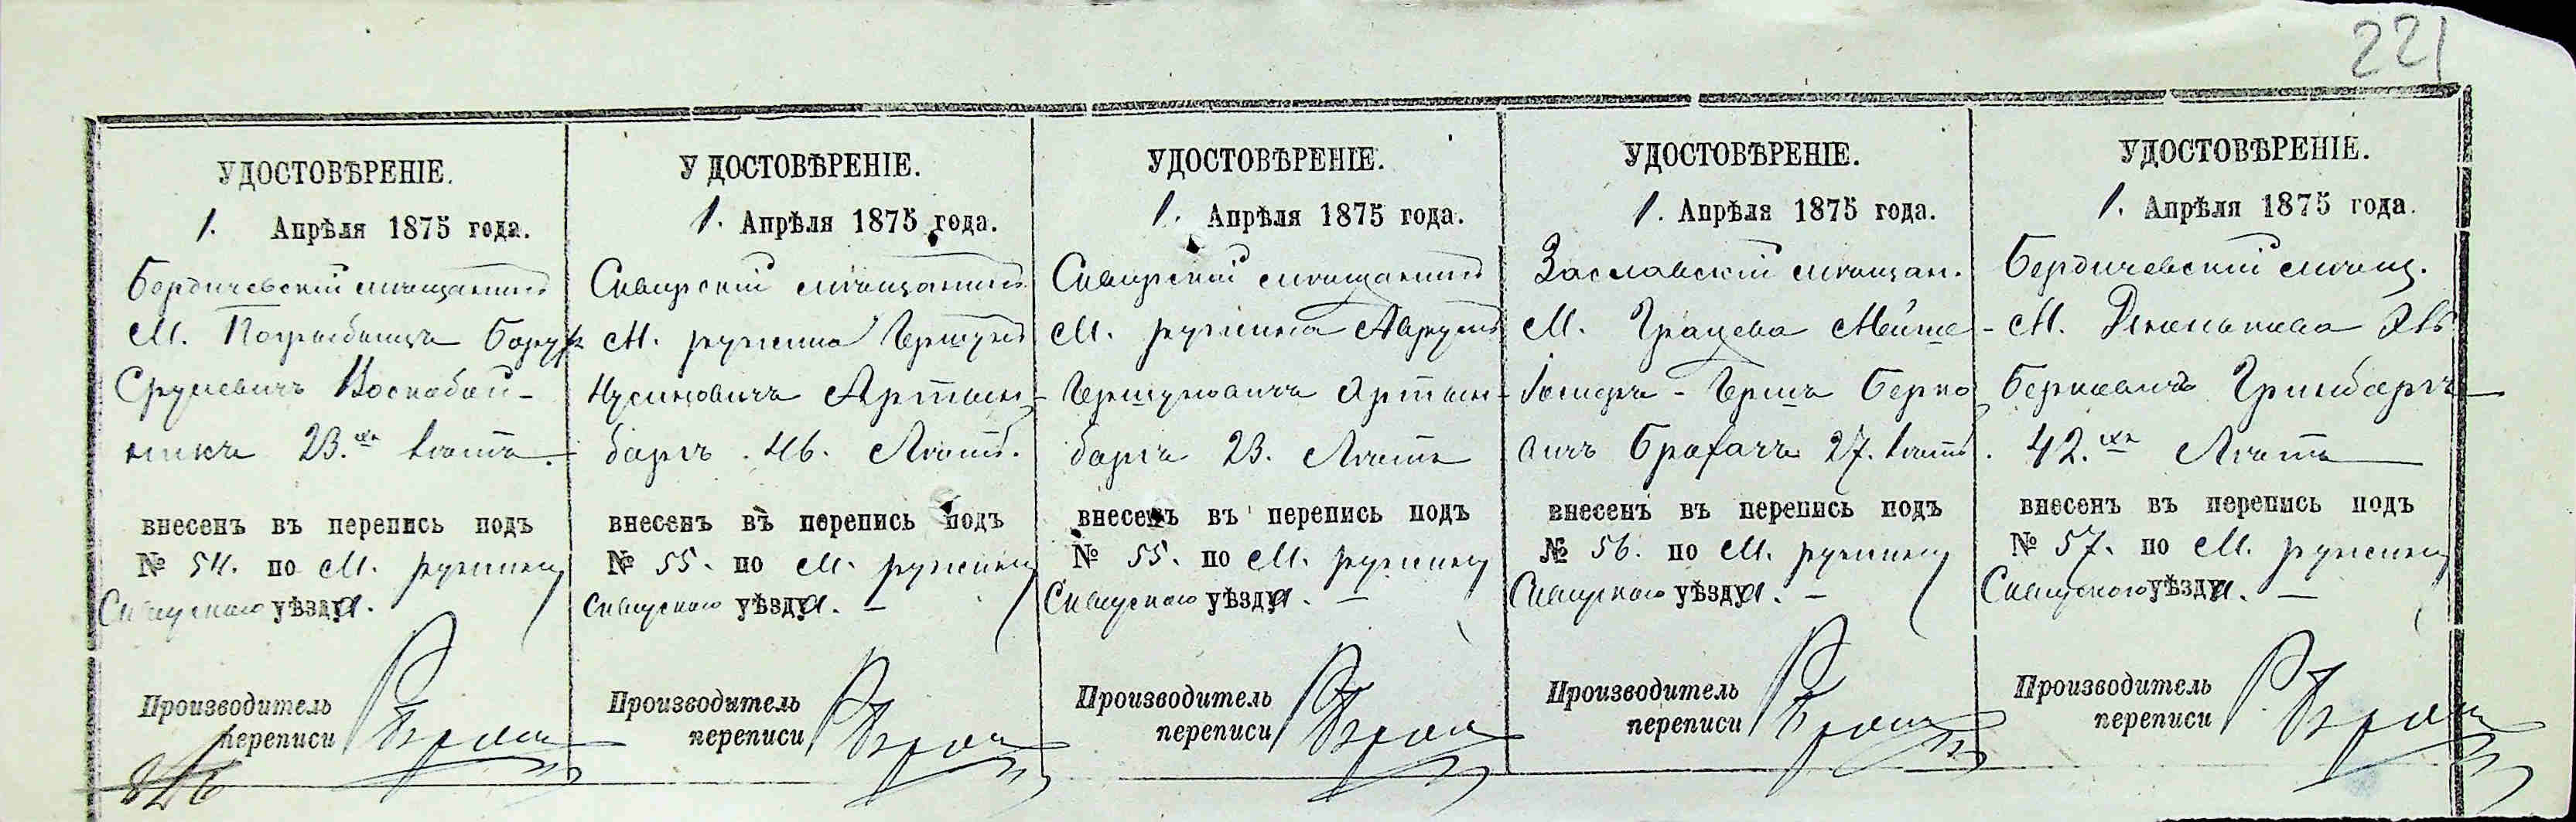 221
УДОСТОВѢРЕНІЕ.
1. Апрѣля 1875 года.
Бердичевскій мѣщанинъ
М. Погребища Борух
Срулевичъ Воскобой-
никъ 23.хъ лѣтъ.
внесенъ въ перепись подъ
№ 54. по М. Ружину
Сквирскаго уѣзда.
Производитель
переписи
УДОСТОВѢРЕНІЕ.
1. Апрѣля 1875 года.
Сквирскій мѣщанинъ
М. Ружина Гершунъ
Нусиновичъ Артын-
баргъ. 46. Лѣтъ.
внесенъ въ перепись подъ
№ 55. по М. Ружину
Сквирскаго уѣзда. —
Производитель
переписи
УДОСТОВѢРЕНІЕ.
1. Апрѣля 1875 года.
Сквирскій мѣщанинъ
М. Ружина
Гершуновичъ Артын-
баргъ 23. Лѣтъ
внесенъ въ перепись подъ
№ 55. по М. Ружину
Сквирскаго уѣзда. —
Производитель
переписи
УДОСТОВѢРЕНІЕ.
1. Апрѣля 1875 года.
Заславскій мѣщан.
М. Грицева Мойше-
Іосифъ-Гершъ Берко
вичъ 27. лѣтъ.
внесенъ въ перепись подъ
№ 56. по М. Ружину
Сквирскаго уѣзда. —
Производитель
переписи
УДОСТОВѢРЕНІЕ.
1. Апрѣля 1875 года.
Бердичевскій мѣщ.
М.
Берковичъ Гринбаргъ
42.хъ Лѣтъ
внесенъ въ перепись подъ
№ 57. по М. Ружину
Сквирскаго уѣзда. —
Производитель
переписи